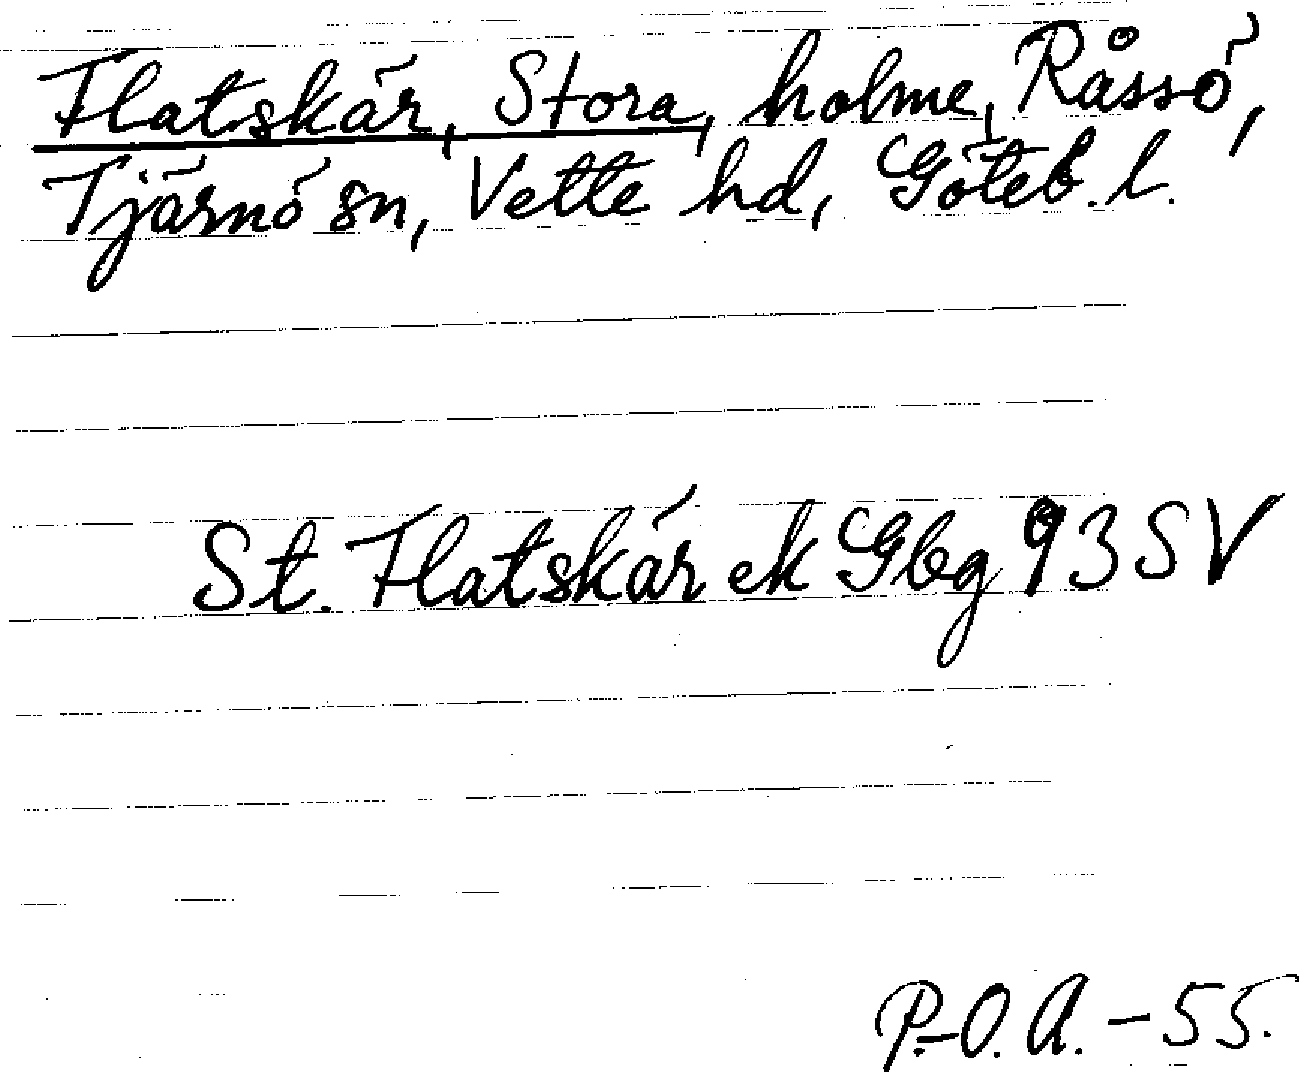 Flatskär, Stora, holme, Råssö,
Tjärnö sn, Vette hd, Göteb. l.
St. Flatskär ek Gbg 93 SV
P.-O. A. - 55.